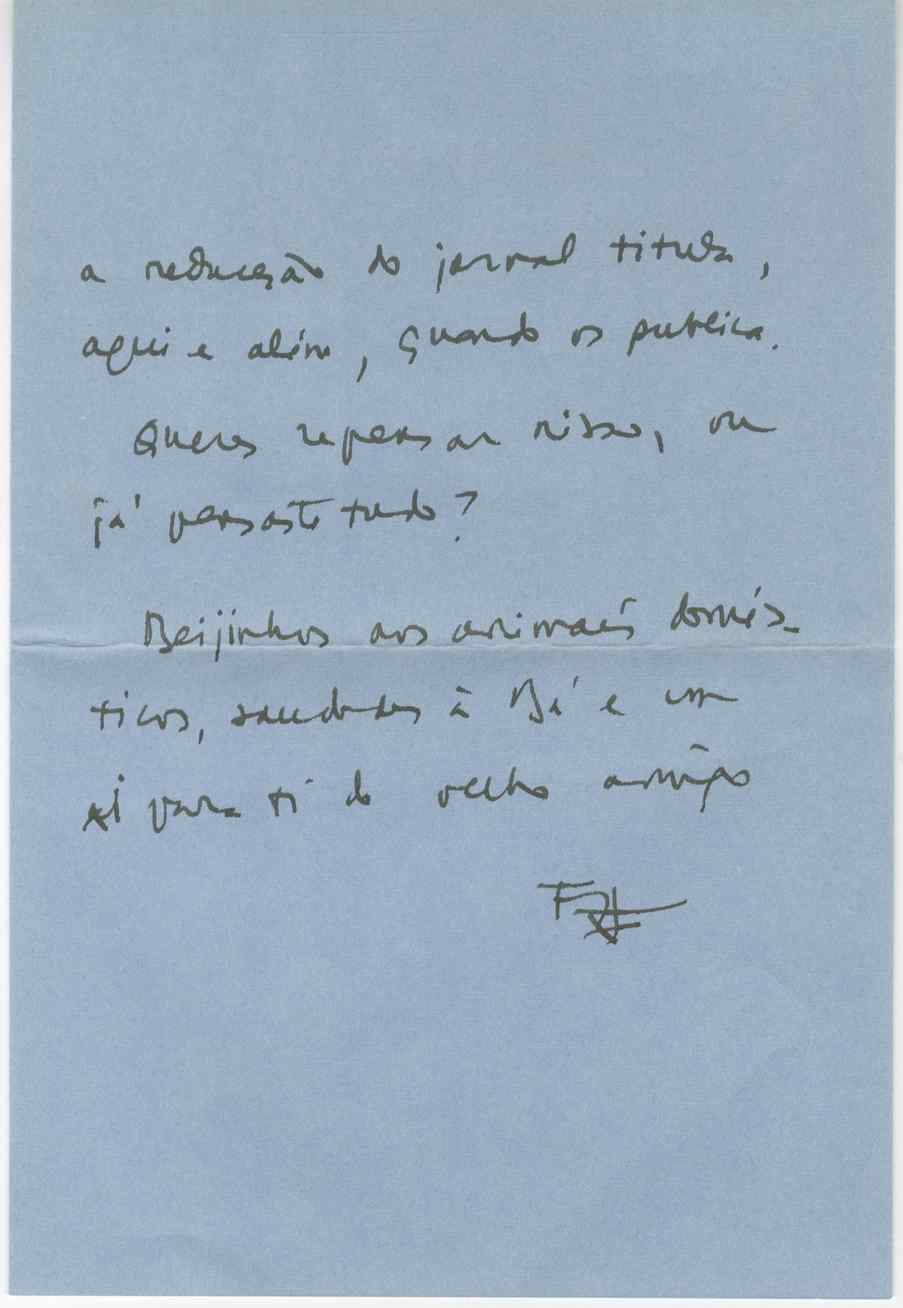 a redacção do jornal titula,
aqui e além, quando os publica.
Queres repensar nisso, ou
já pensaste tudo?
Beijinhos aos animais domés-
ticos, saudades à Bá e um
para ti do velho amigo